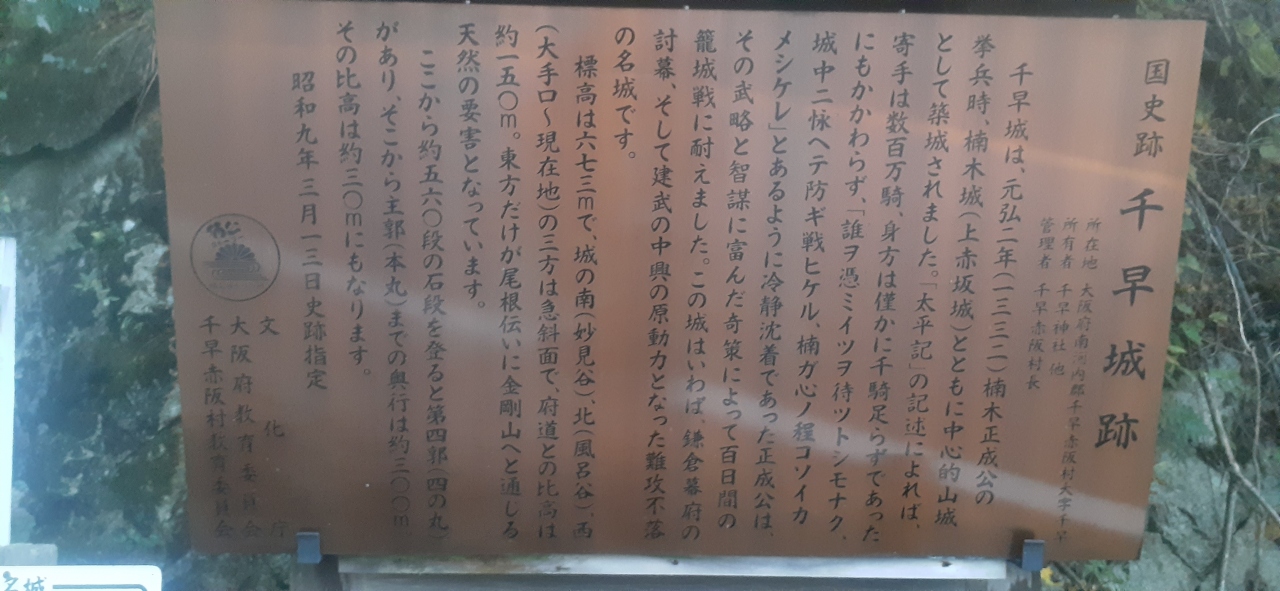 国史跡 千早城跡
所在地 大阪府南河内郡千早赤阪村大字千早
所有者 千早神社 他
管理者 千早赤阪村長
千早城は、元弘二年(一三三二)楠木正成公の
挙兵時、楠木城(上赤坂城)とともに中心的山城
として築城されました。「太平記」の記述によれば、
寄手は数百万騎、身方は僅かに千騎足らずであった
にもかかわらず、「誰ヲ憑ミイツヲ待ツトシモナク、
城中ニ怺ヘテ防ギ戦ヒケル、楠ガ心ノ程コソイカ
メシケレ」とあるように冷静沈着であった正成公は、
その武略と智謀に富んだ奇策によって百日間の
籠城戦に耐えました。この城はいわば、鎌倉幕府の
討幕、そして建武の中興の原動力となった難攻不落
の名城です。
標高は六七三mで、城の南(妙見谷)、北(風呂谷)、西
(大手口～現在地)の三方は急斜面で、府道との比高は
約一五〇m。東方だけが尾根伝いに金剛山へと通じる
天然の要害となっています。
ここから約五六〇段の石段を登ると第四郭(四の丸)
があり、そこから主郭(本丸)までの奥行は約三〇〇m
その比高は約三〇mにもなります。
昭和九年三月一三日史跡指定
文化庁
大阪府教育委員会
千早赤阪村教育委員会
名城